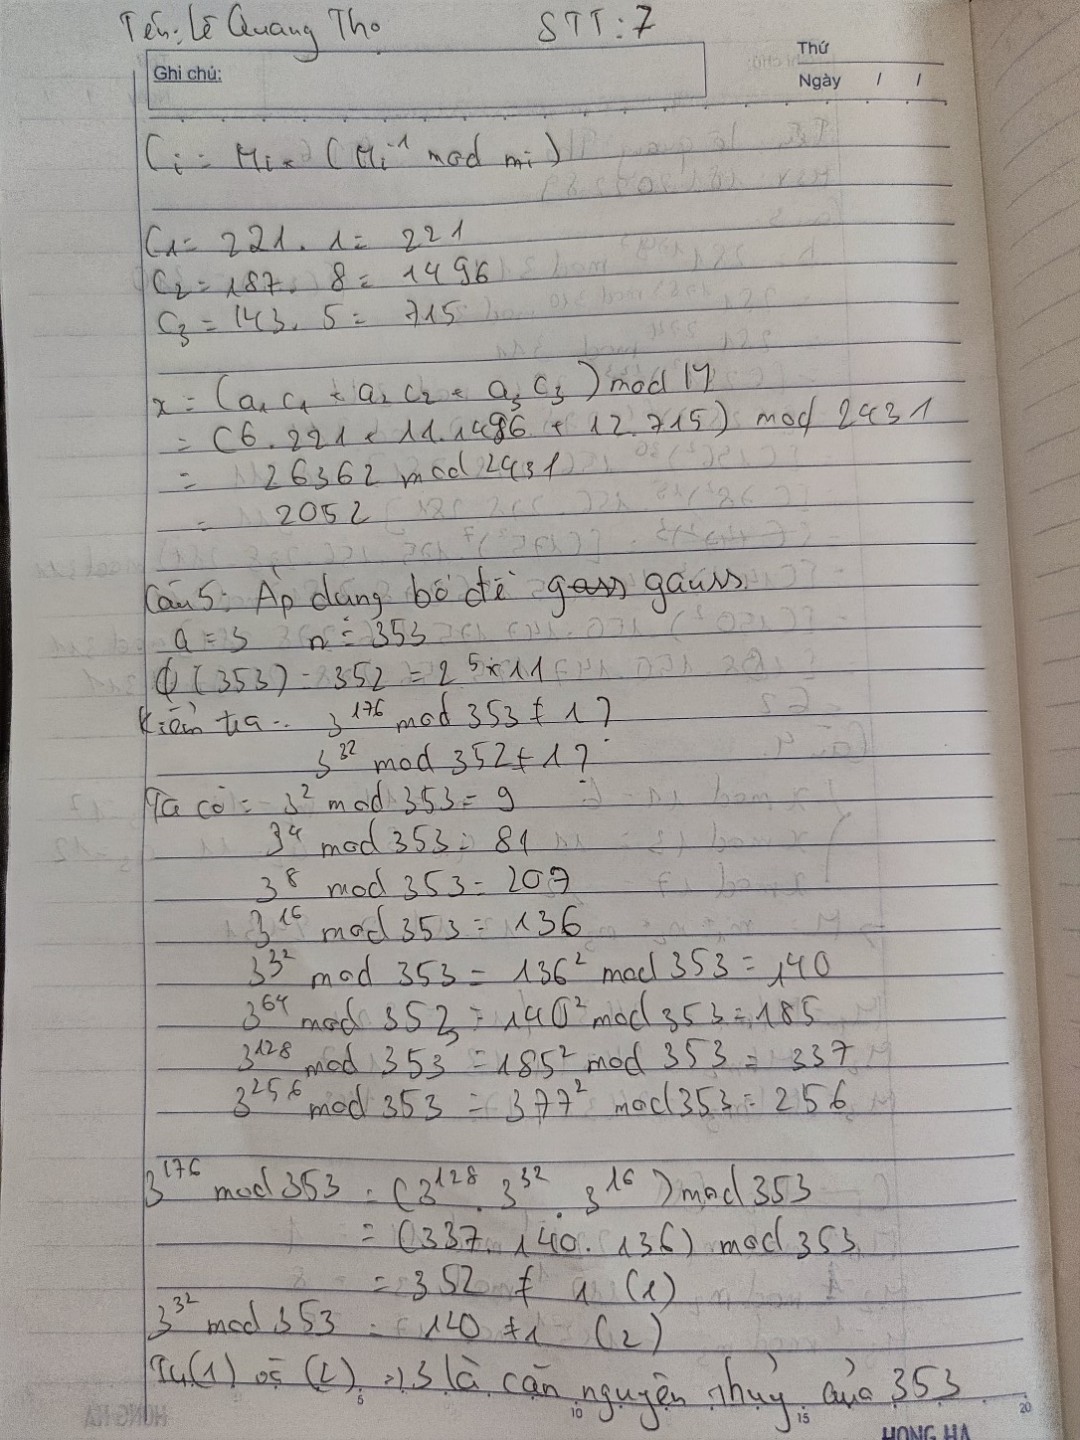 Tên: Lê Quang Thọ STT: 7
Ghi chú:
Thứ
Ngày / /
Ci = Mi × (Mi⁻¹ mod mi)
C1 = 221. 1 = 221
C2 = 187. 8 = 1496
C3 = 143. 5 = 715
x = (a1 c1 + a2 c2 + a3 c3) mod M
= (6.221 + 11.1496 + 12.715) mod 2431
= 26362 mod 2431
= 2052
Câu 5: Áp dụng bổ đề gauss
a = 3 n = 353
Φ(353) = 352 = 2⁵ * 11
Kiểm tra: 3¹⁷⁶ mod 353 ≠ 1 ?
3³² mod 352 ≠ 1 ?
Ta có: 3² mod 353 = 9
3⁴ mod 353 = 81
3⁸ mod 353 = 207
3¹⁶ mod 353 = 136
3³² mod 353 = 136² mod 353 = 140
3⁶⁴ mod 353 = 140² mod 353 = 185
3¹²⁸ mod 353 = 185² mod 353 = 337
3²⁵⁶ mod 353 = 377² mod 353 = 256
3¹⁷⁶ mod 353 = (3¹²⁸ . 3³² . 3¹⁶) mod 353
= (337. 140. 136) mod 353
= 352 ≠ 1 (1)
3³² mod 353 = 140 ≠ 1 (2)
Từ (1) và (2) => 3 là căn nguyên thuỷ của 353
5 10 15 20
HONG HA